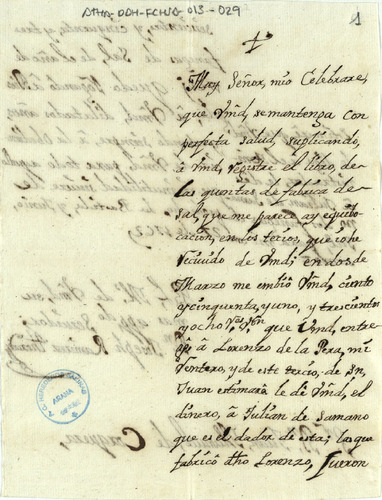 ATHA-DDH-FCHUG-013-029
1
+
Muy Señor, mio Celebrare,
que Vmd, se mantenga con
perfecta salud, suplicando,
a Vmd, registre el libro, de
las quentas de fabrica de
sal, que me parece ay equibo
cacion, en los tercios, que io he
recivido de Vmd; en dos de
Marzo me embio Vmd, ciento
y cinquenta, y uno, y trescientos
y ocho que Vmd, entre
go a Lorenzo de la Pera, mi
Ventero, y de este tercio, de Sn,
Juan estimara le de Vmd, el
dinero, a Julian de Samano
que es el dador de esta; las que
fabrico dho Lorenzo, fueron